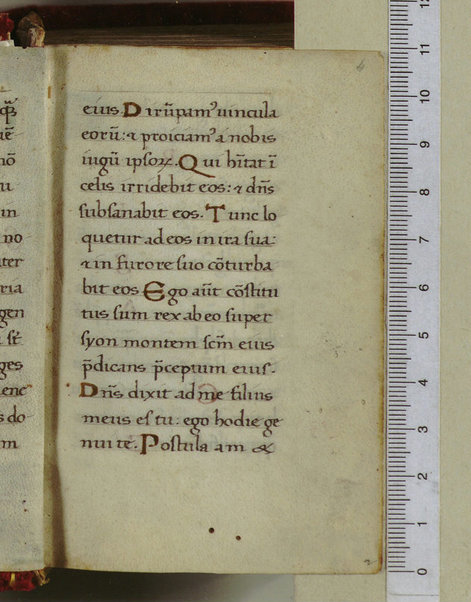 eius Dirūpam᾽ uincula
eorū: ⁊ proiciam᾽ a nobis
iugū ipsoꝝ. Qui hītat ī
celis irridebit eos: ⁊ dn̄s
subsanabit eos. Tunc lo
quetur ad eos in ira sua:
⁊ in furore suo cōturba
bit eos Ego aūt cōstitu
tus sum rex ab eo super
syon montem scm̄ eius
p̄dicans p̄ceptum eius.
Dn̄s dixit ad me filius
meus es tu: ego hodie ge
nui te. Postula a m &